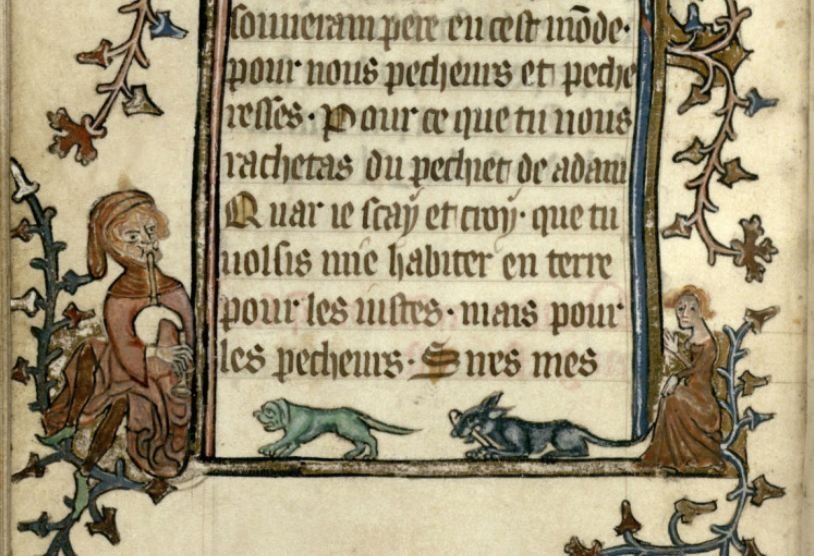 souueram pere en cest mōde·
pour nous pecheurs et peche
resses· Pour ce que tu nous
rachetas du pechiet de adam
Quar ie scay et croy· que tu
uolsis mie habiter en terre
pour les iustes· mais pour
les pecheurs· Sires mes